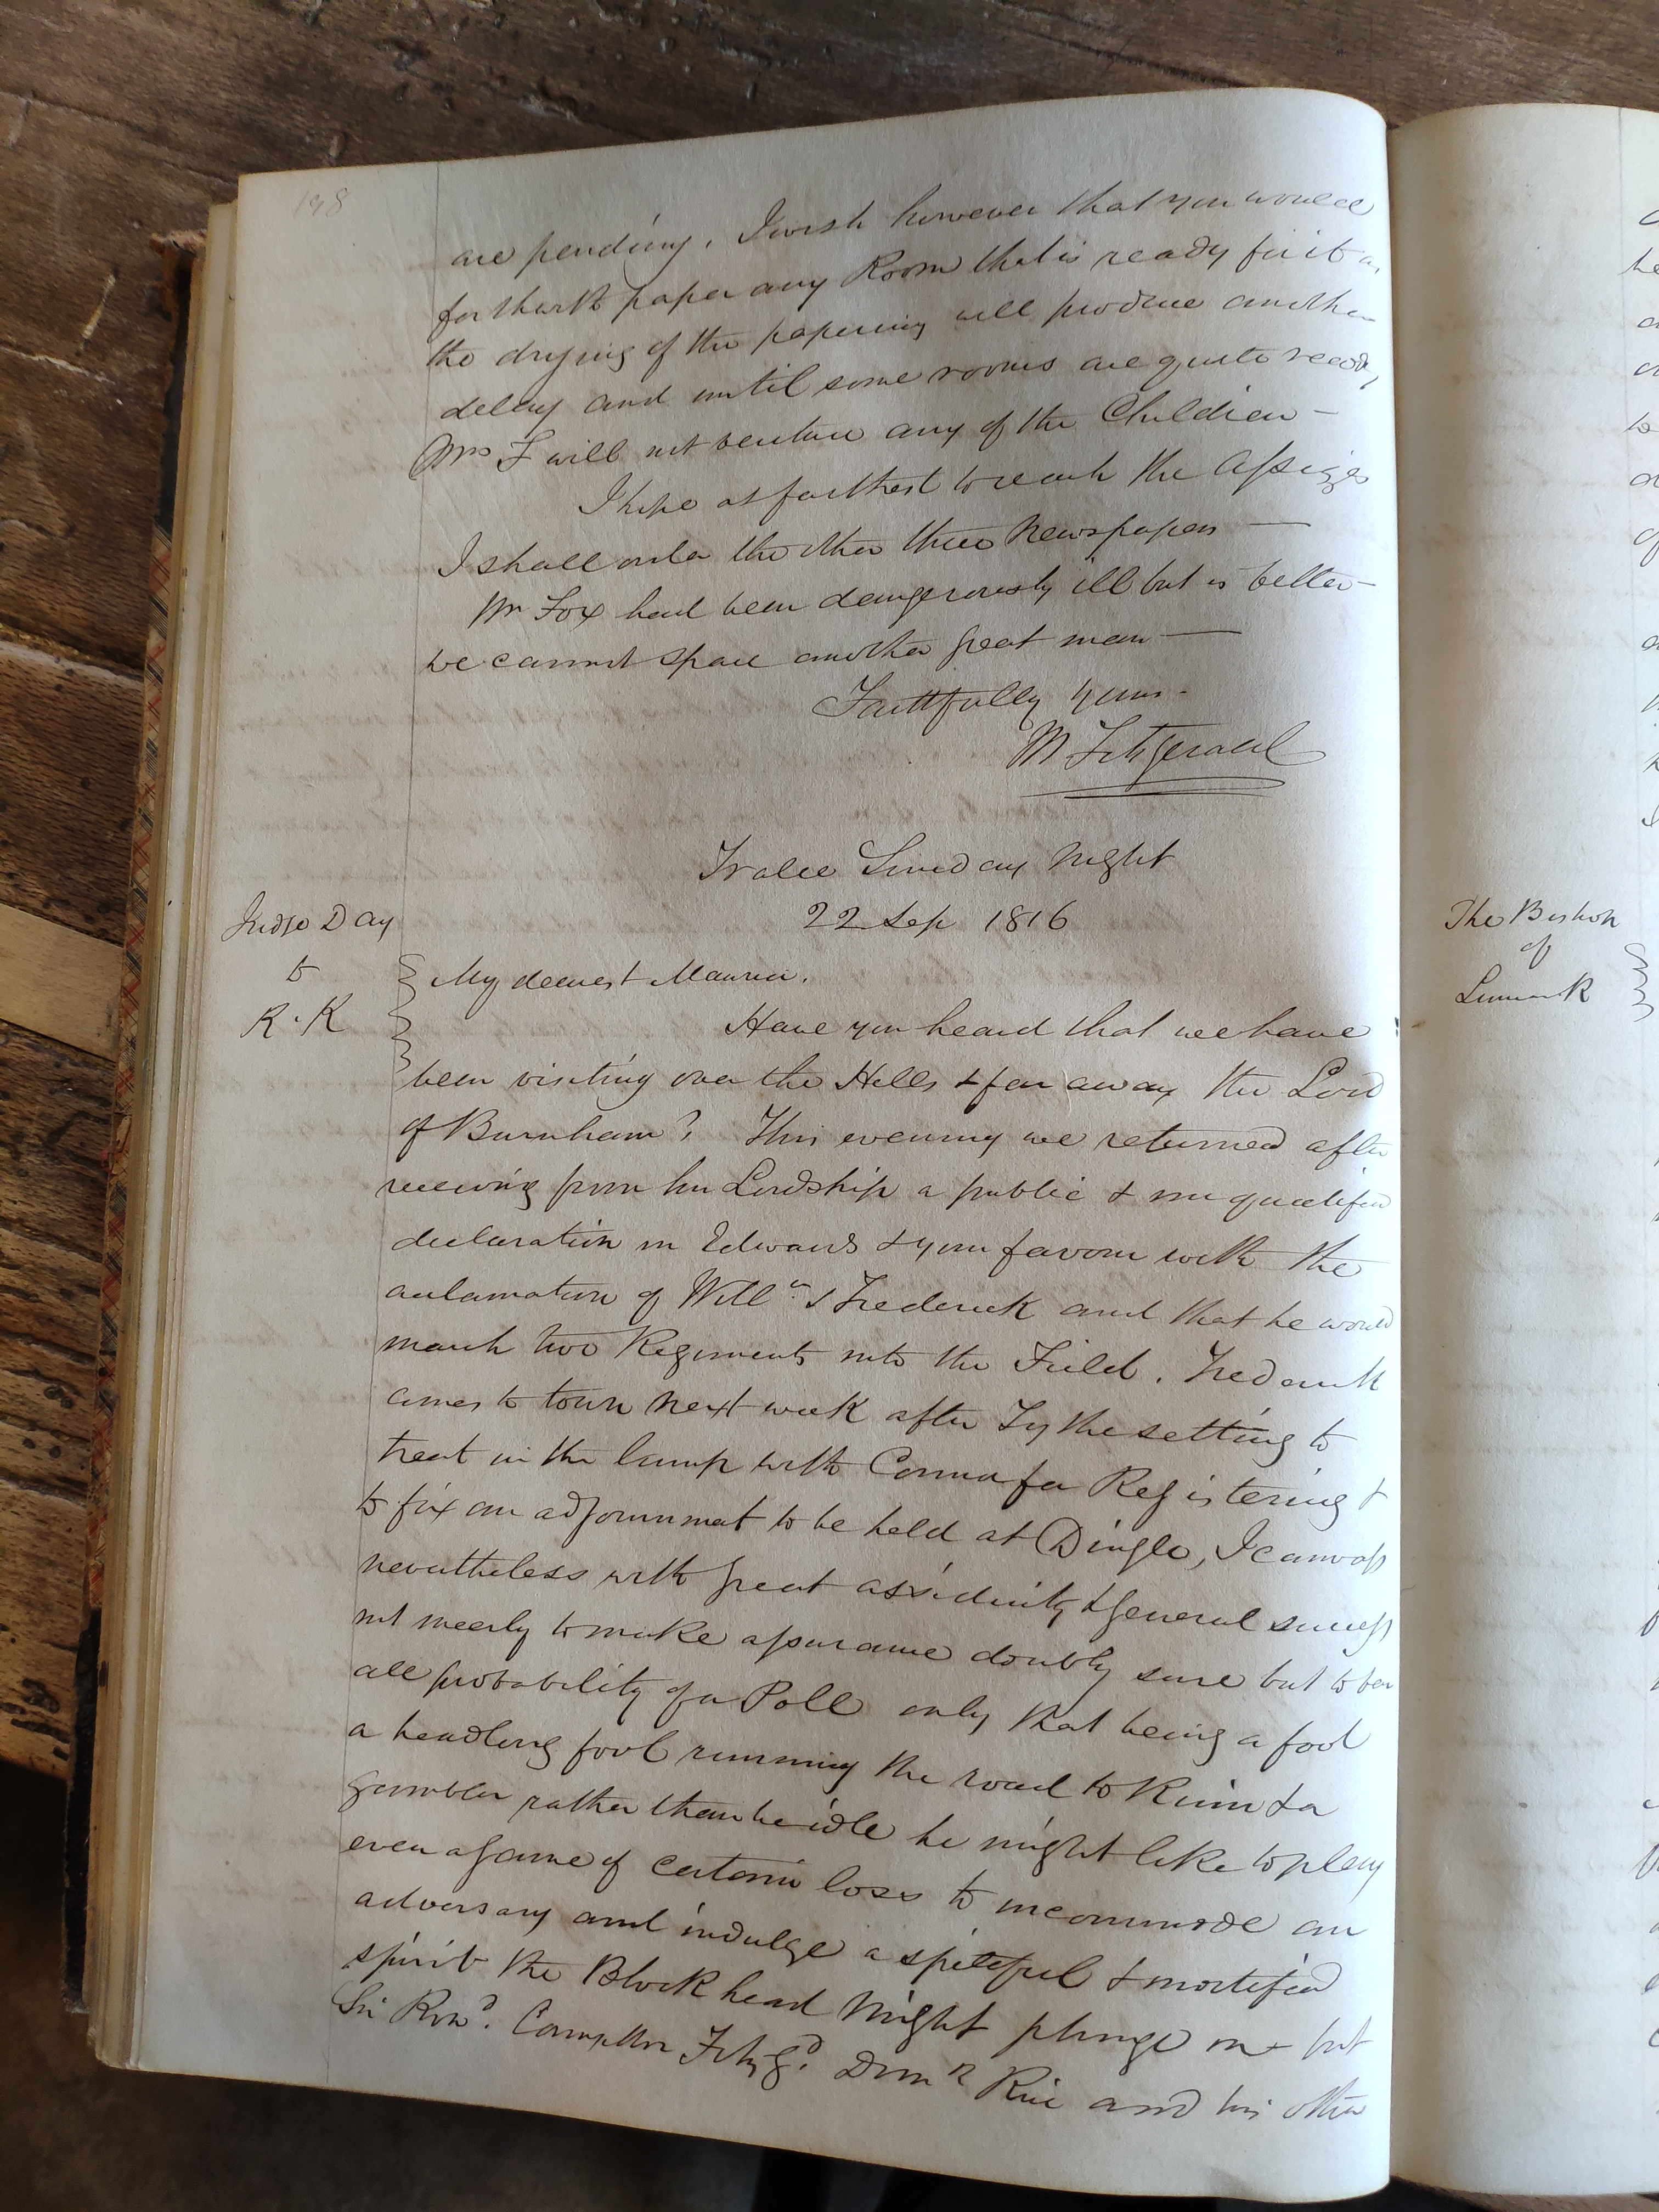 198
are pending. I wish however that you would
forthwith paper any Room that is ready for it as
the drying of the papering will produce another
delay and until some rooms are quite ready
Mrs F will not venture any of the Children —
I hope at farthest to reach the Assizes
I shall order the other three Newspapers —
Mr Fox had been dangerously ill but is better —
we cannot spare another great man —
Faithfully yours -
M Fitzgerald
Tralee Sunday Night
22 Sep 1816
Judge Day
to
R. K
My dearest Maurice.
Have you heard that we have
been visiting over the Hills & far away the Lord
of Burnham? This evening we returned after
receiving from his Lordship a public & unqualified
declaration in Edwards & your favour with the
acclamation of Willm. & Frederick and that he would
march two Regiments into the Field. Frederick
comes to town next week after Tythe setting to
treat in the lump with Connor for Registering &
to fix an adjournment to be held at Dingle, I canvass
nevertheless with great assiduity & general success
not meerly to make assurance doubly sure but to bar
all probability of a Poll only that being a fool
a headlong fool running the road to Ruin & a
gambler rather than be idle he might like to play
even a game of certain loss to incommode an
adversary and indulge a spiteful & mortified
spirit the Blockhead might plunge on but
Sir Rowd. Crompton Fitzgd. Domk Rice and his other
The Bishop
of
Limerick